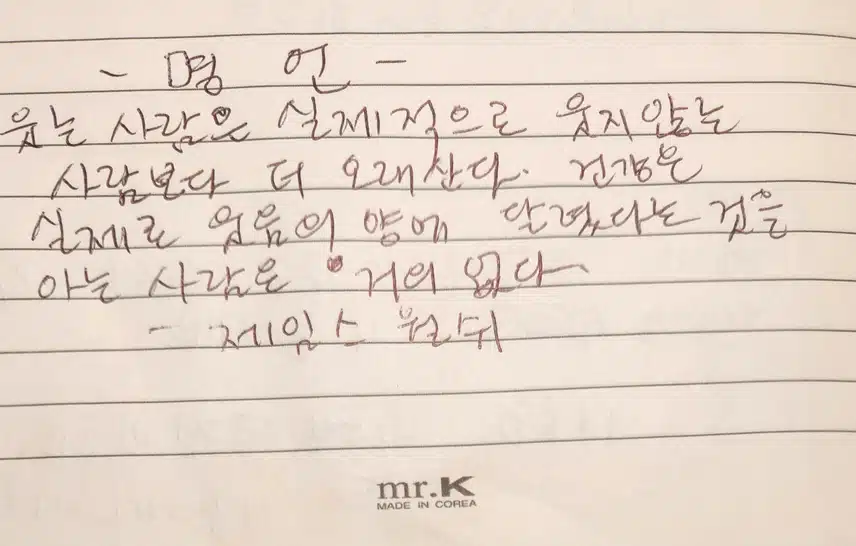 - 명 언 -
웃는 사람은 실제적으로 웃지않는
사람보다 더 오래산다. 건강은
실제로 웃음의 양에 달렸다는 것을
아는 사람은 거의 없다.
- 제임스 월쉬
mr.K
MADE IN COREA